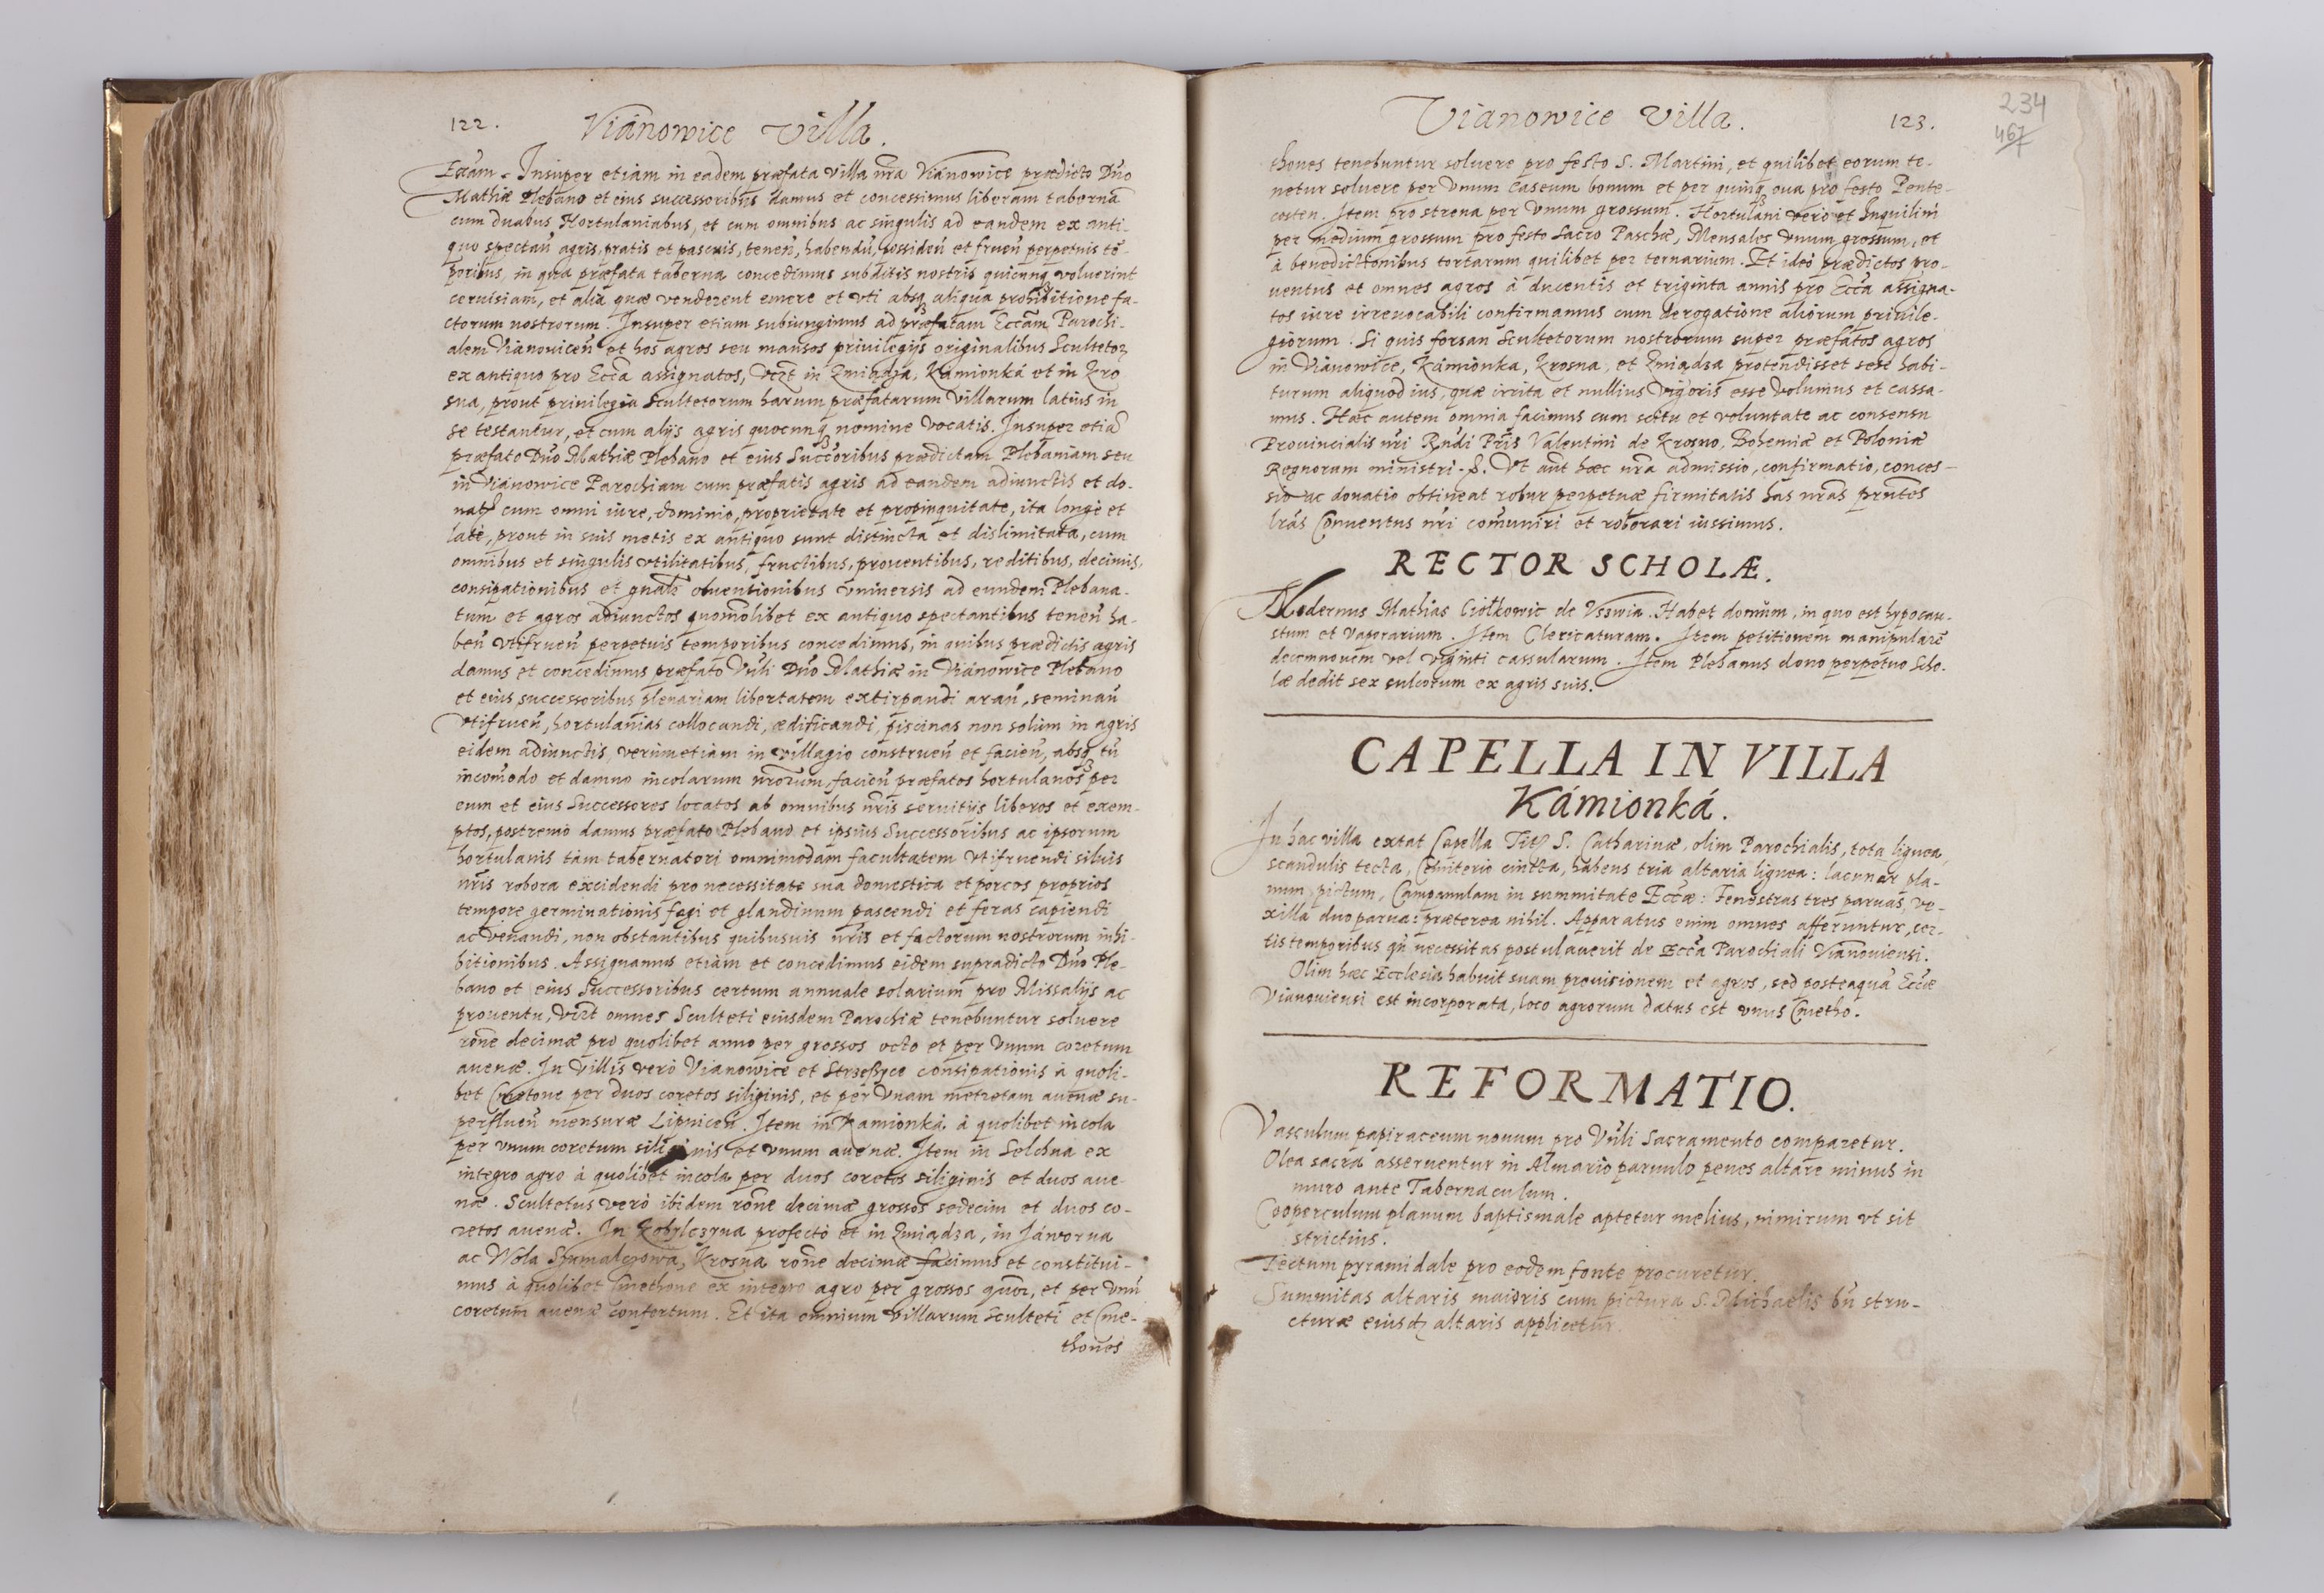 122.
Vianowice Villa.
Eccam. Insuper etiam in eadem præfata villa nrā Vianowice prædicto Dño
Mathiæ Plebano et eius successoribus damus et concessimus liberam tabernā
cum duabus Hortulaniabus, et cum omnibus ac singulis ad eandem ex anti-
quo spectań agris, pratis et pascuis, teneń, habendū, possideń et frueń perpetuis tē-
poribus, in qua præfata taberna concedimus subditis nostris quicunqȝ voluerint
ceruisiam, et alia quæ venderent emere et vti absqȝ aliqua prohibitione fa-
ctorum nostrorum. Insuper etiam subiungimus ad præfatam Eccām Parochi-
alem Vianouiceń et hos agros seu mansos priuilegijs originalibus Scultetoꝝ
ex antiquo pro Eccā assignatos, vizt in Zmiadza, Kámionká et in Kro
sna, prout priuilegia Scultetorum harum præfatarum villarum latius in
se testantur, et cum alijs agris quocunqȝ nomine vocatis. Insuper etiā
præfato Dño Mathiæ Plebano et eius Succoribus prædictam Plebaniam seu
in Vianowice Parochiam cum præfatis agris ad eandem adiunctis et do-
natis cum omni iure, dominio, proprietate et propinquitate, ita longè et
latè, prout in suis metis ex antiquo sunt distincta et dislimitata, cum
omnibus et singulis vtilitatibus, fructibus, prouentibus, reditibus, decimis,
consipationibus et gnalr obuentionibus vniuersis ad eundem Plebana-
tum et agros adiunctos quomolibet ex antiquo spectantibus teneń ha-
beń vtifrueń perpetuis temporibus concedimus, in quibus prædictis agris
damus et concedimus præfato Vnli Dño Mathiæ in Vianowice Plebano
et eius successoribus plenariam libertatem extirpandi arań, seminań
vtifrueń, hortulanias collocandi, ædificandi, piscinas non solùm in agris
eidem adiunctis, verùmetiam in villagio construeń et facień, absqȝ tń
incomodo et damno incolarum nrorum, facień præfatos hortulanos per
eum et eius Successores locatos ab omnibus nris seruitijs liberos et exem-
ptos, postremò damus præfato Plebano et ipsius Successoribus ac ipsorum
hortulanis tàm tabernatori omnimodam facultatem vtifruendi siluis
nris robora excidendi pro necessitate sua domestica et porcos proprios
tempore germinationis fagi et glandinum pascendi et feras capiendi
ac venandi, non obstantibus quibusuis nris et factorum nostrorum inhi-
bitionibus. Assignamus etiàm et concedimus eidem supradicto Dño Ple-
bano et eius Successoribus certum annuale solarium pro Missalijs ac
prouentu, vizt omnes Sculteti eiusdem Parochiæ tenebuntur soluere
rōne decimæ pro quolibet anno per grossos octo et per vnum coretum
auenæ. In villis verò Vianowice et Strzeßyce consipationis à quoli-
bet Cmetone per duos coretos siliginis, et per vnam metretam auenæ su-
perflueń mensuræ Lipniceń. Item in Kamionká à quolibet incola
per vnum coretum siliginis et vnum auenæ. Item in Selchna ex
integro agro à quolibet incola per duos coretos siliginis et duos aue-
næ. Scultetus verò ibidem rōne decimæ grossos sedecim et duos co-
retos auenæ. In Kobylczyna profectò et in Zmiądza, in Jáworna
ac Wola Szymalczowa, Krosna rōne decimæ facimus et constitui-
mus à quolibet Cmethone ex integro agro per grossos quoꝝ, et per vnū
coretum auenæ confertum. Et ita omnium villarum Sculteti et Cme-
thones
Vianowice Villa.
123.
234
467
thones tenebuntur soluere pro festo S. Martini, et quilibet eorum te-
netur soluere per vnum caseum bonum et per quinqȝ oua pro festo Pente-
costen. Item pro strena per vnum grossum. Hortulani verò et Inquilini
per medium grossum pro festo Sacro Paschæ, Mensales vnum grossum, et
à benedictionibus tortarum quilibet per ternarium. Et ideò prædictos pro-
uentus et omnes agros à ducentis et triginta annis pro Eccā assigna-
tos iure irreuocabili confirmamus cum derogatione aliorum priuile-
giorum. Si quis forsan Scultetorum nostrorum super præfatos agros
in Vianowice, Kámionka, Krosna, et Zmiądza protendisset sese habi-
turum aliquod ius, quæ irrita et nullius vigoris esse volumus et cassa-
mus. Hæc autem omnia facimus cum scitu et voluntate ac consensu
Prouincialis nri Rndi Pris Valentini de Krosno, Bohemiæ et Poloniæ
Regnorum ministri. Vt aūt hæc nra admissio, confirmatio, conces-
sio ac donatio obtineat robur perpetuæ firmitatis has nras prntes
lras Conuentus nri comuniri et roborari iussimus.
RECTOR SCHOLÆ.
Modernus Mathias Ciołkowic de Vsswia. Habet domum, in quo est hypocau-
stum et vaporarium. Item Clericaturam. Item petitionem manipularē
decemnouem vel viginti cassularum. Item Plebanus dono perpetuo Scho-
læ dedit sex sulcorum ex agris suis.
CAPELLA IN VILLA
Kámionká.
In hac villa extat Capella Titᵉ S. Catharinæ, olim Parochialis, tota lignea,
scandulis tecta, Cemiterio cincta, habens tria altaria lignea: lacunar pla-
num, pictum, Campanulam in summitate Eccæ: Fenestras tres paruas, ve-
xilla duo parua: præterea nihil. Apparatus enim omnes afferuntur, cer-
tis temporibus qń necessitas postulauerit de Ecca Parochiali Vianouiensi.
Olim hæc Ecclesia habuit suam prouisionem et agros, sed posteaquā Eccæ
Vianouiensi est incorporata, loco agrorum datus est vnus Cmetho.
REFORMATIO.
Vasculum papiraceum nouum pro Vnli Sacramento comparetur.
Olea sacra asseruentur in Almario paruulo penes altare minus in
muro ante Tabernaculum.
Cooperculum planum baptismale aptetur melius, nimirum vt sit
strictius.
Tectum pyramidale pro eodem fonte procuretur.
Summitas altaris maioris cum pictura S. Michaelis bń stru-
cturæ eiusdꝫ altaris applicetur.